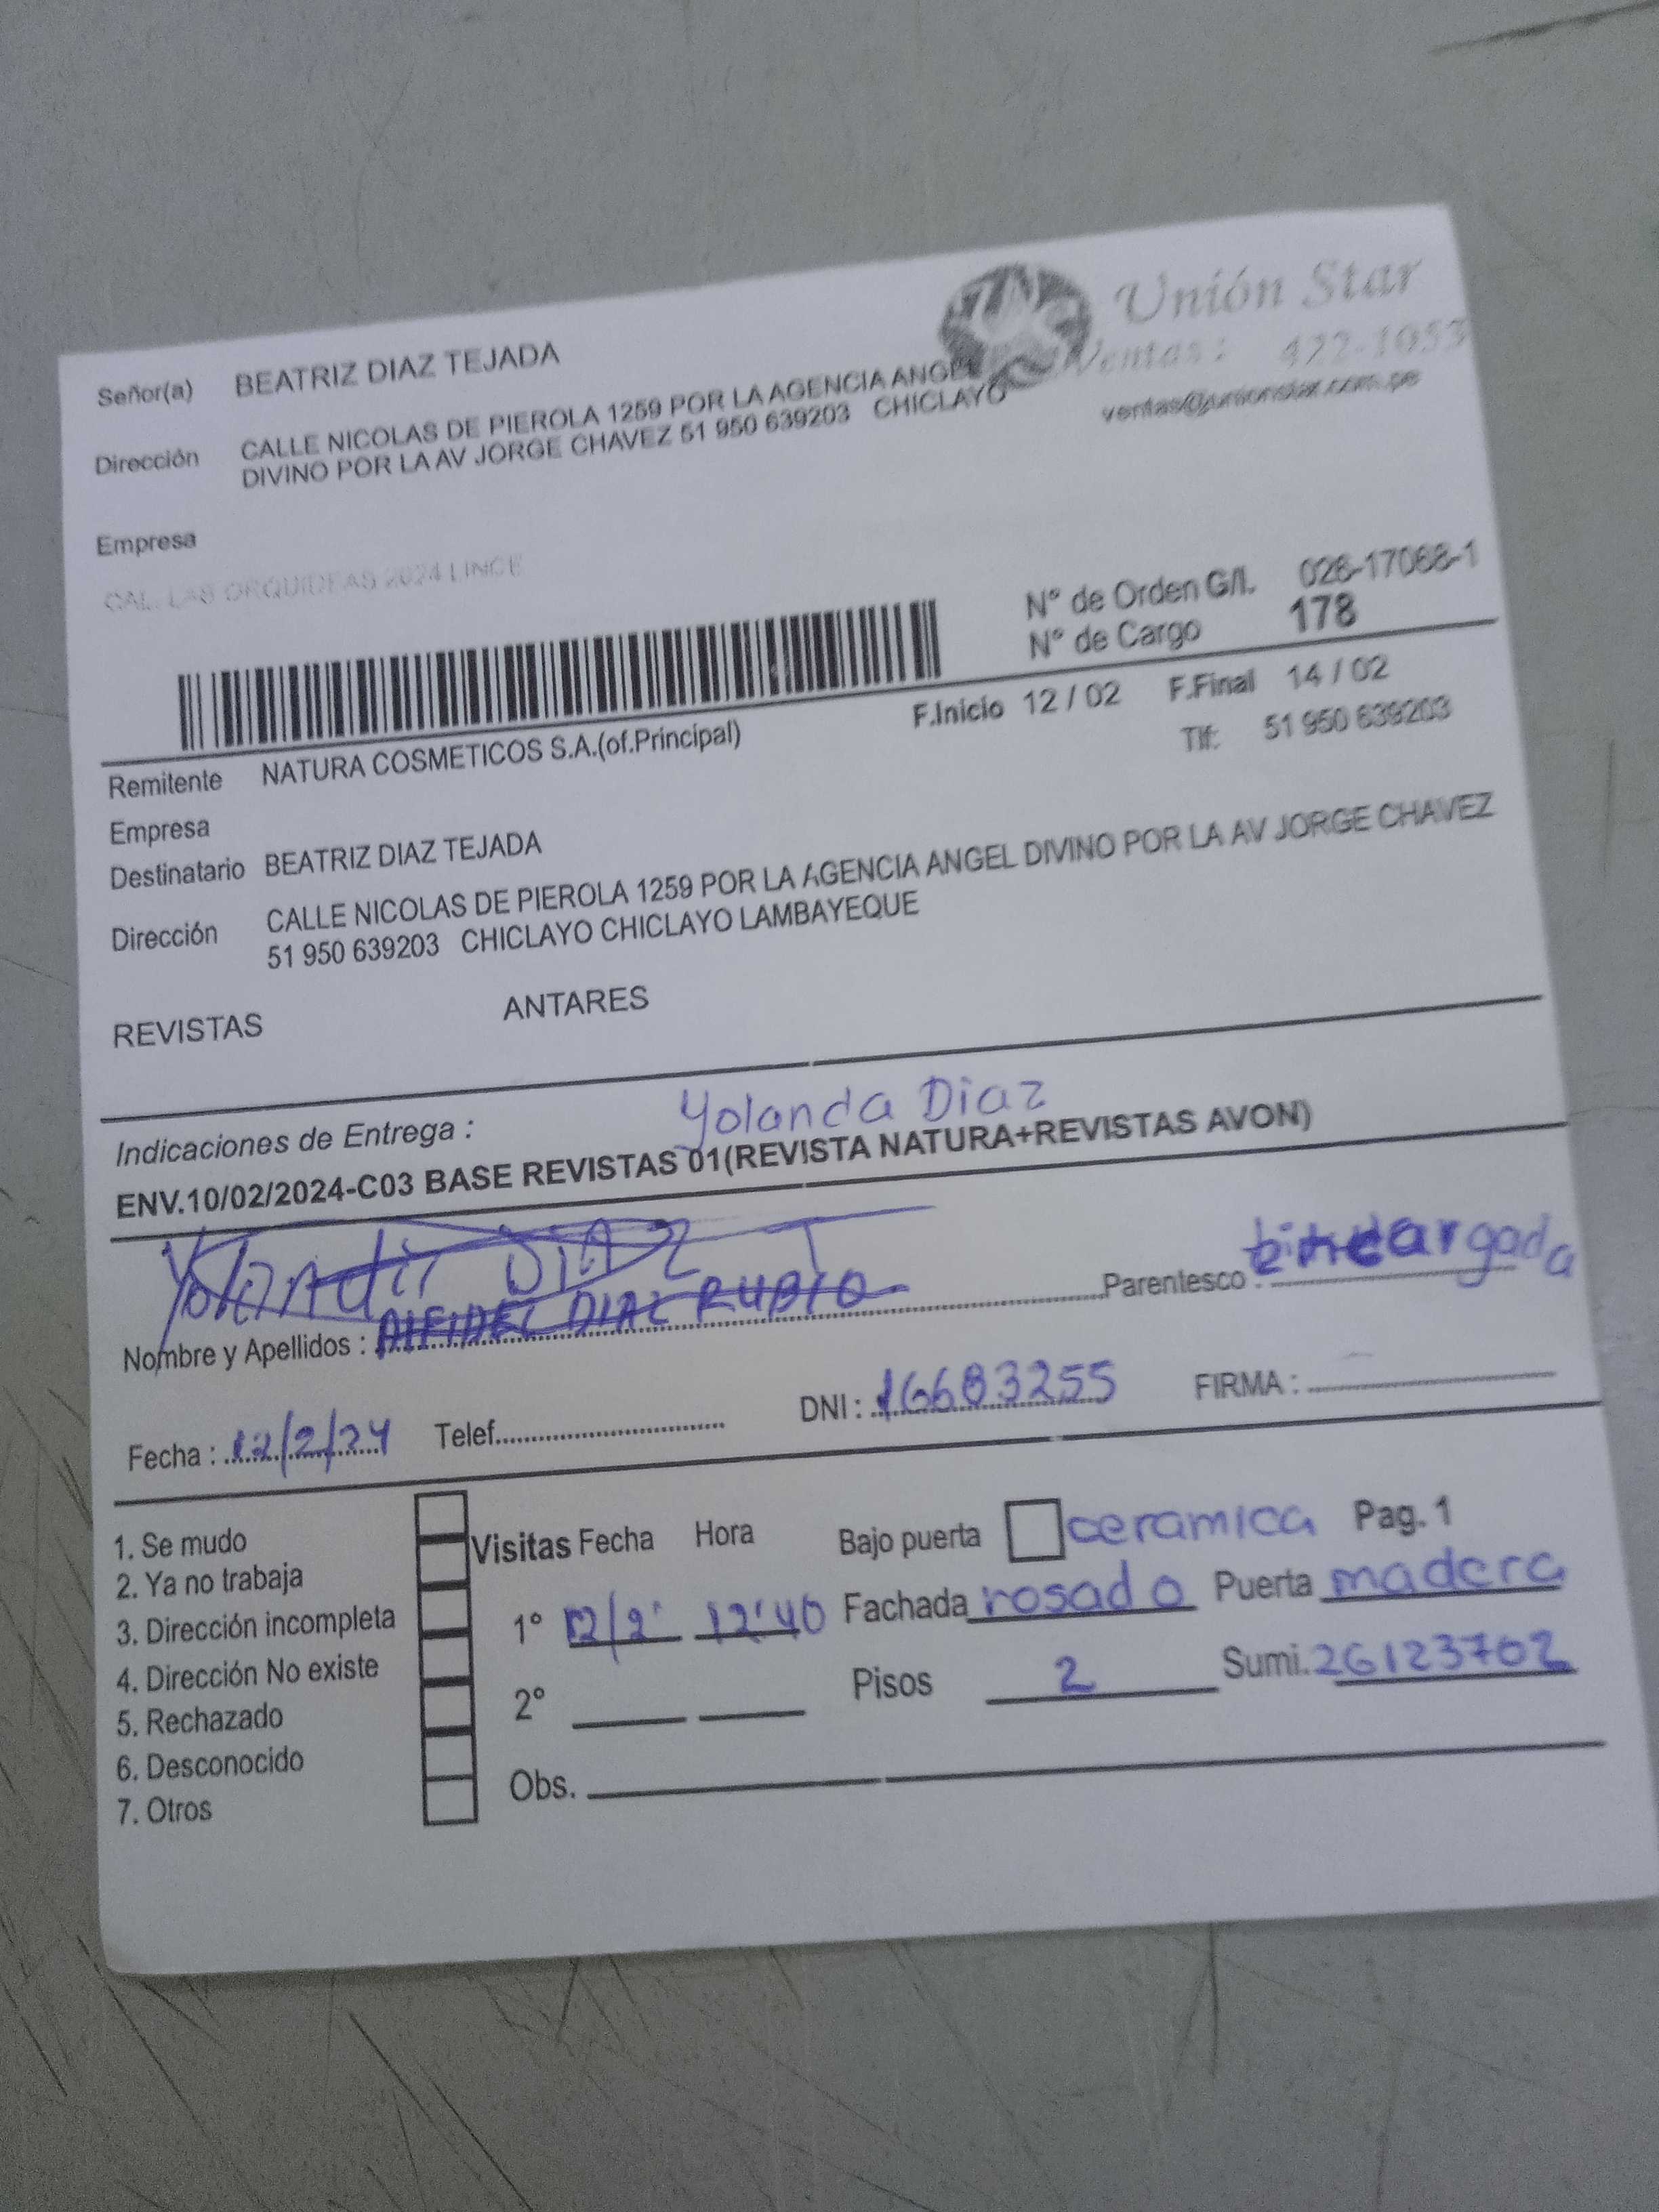 Unión Star
Ventas: 422-1053
ventas@unionstar.com.pe
Señor(a) BEATRIZ DIAZ TEJADA
Dirección CALLE NICOLAS DE PIEROLA 1259 POR LA AGENCIA ANGEL
DIVINO POR LA AV JORGE CHAVEZ 51 950 639203 CHICLAYO
Empresa
CAL. LAS ORQUIDEAS 2024 LINCE
N° de Orden G/I. 026-17068-1
N° de Cargo 178
F.Inicio 12 / 02 F.Final 14 / 02
Remitente NATURA COSMETICOS S.A.(of.Principal) Tlf: 51 950 639203
Empresa
Destinatario BEATRIZ DIAZ TEJADA
Dirección CALLE NICOLAS DE PIEROLA 1259 POR LA AGENCIA ANGEL DIVINO POR LA AV JORGE CHAVEZ
51 950 639203 CHICLAYO CHICLAYO LAMBAYEQUE
REVISTAS ANTARES
Indicaciones de Entrega : Yolanda Diaz
ENV.10/02/2024-C03 BASE REVISTAS 01(REVISTA NATURA+REVISTAS AVON)
Yolanda Diaz T
Nombre y Apellidos : DIAZ RUBIO Parentesco : Encargada
Fecha : 12/2/24 Telef. DNI : 16683255 FIRMA :
1. Se mudo
2. Ya no trabaja
3. Dirección incompleta
4. Dirección No existe
5. Rechazado
6. Desconocido
7. Otros
Visitas Fecha Hora Bajo puerta ceramica Pag. 1
1° 12/2 12:40 Fachada rosado Puerta madera
2° Pisos 2 Sumi. 26123702
Obs.